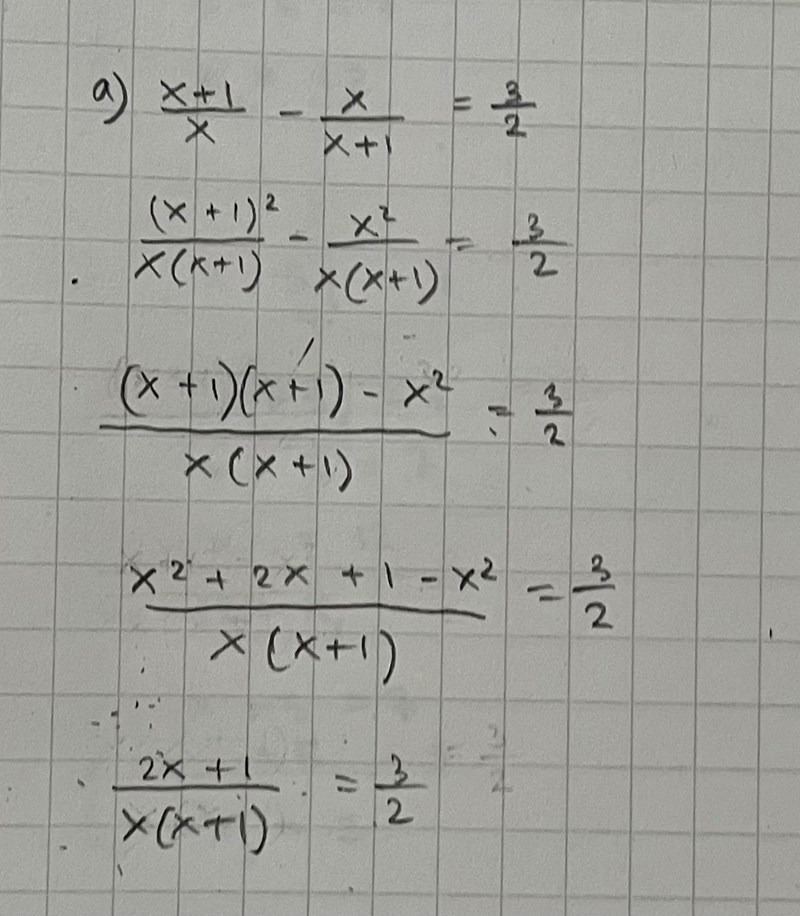 a) (x+1)/x - x/(x+1) = 3/2
(x+1)²/(x(x+1)) - x²/(x(x+1)) = 3/2
((x+1)(x+1) - x²)/(x(x+1)) = 3/2
(x² + 2x + 1 - x²)/(x(x+1)) = 3/2
(2x+1)/(x(x+1)) = 3/2